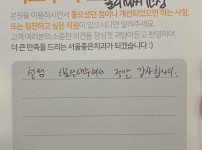 본원을 이용하시면서 좋으셨던 점이나 개선되었으면 하는 사항,
또는 칭찬하고 싶은 직원이 있으시다면 알려주세요.
고객 여러분의 소중한 의견을 정성껏 귀담아듣고 반영하여
더 큰 만족을 드리는 서울좋은치과가 되겠습니다 :)
설명 잘해주셔서 정말 감사합니다.